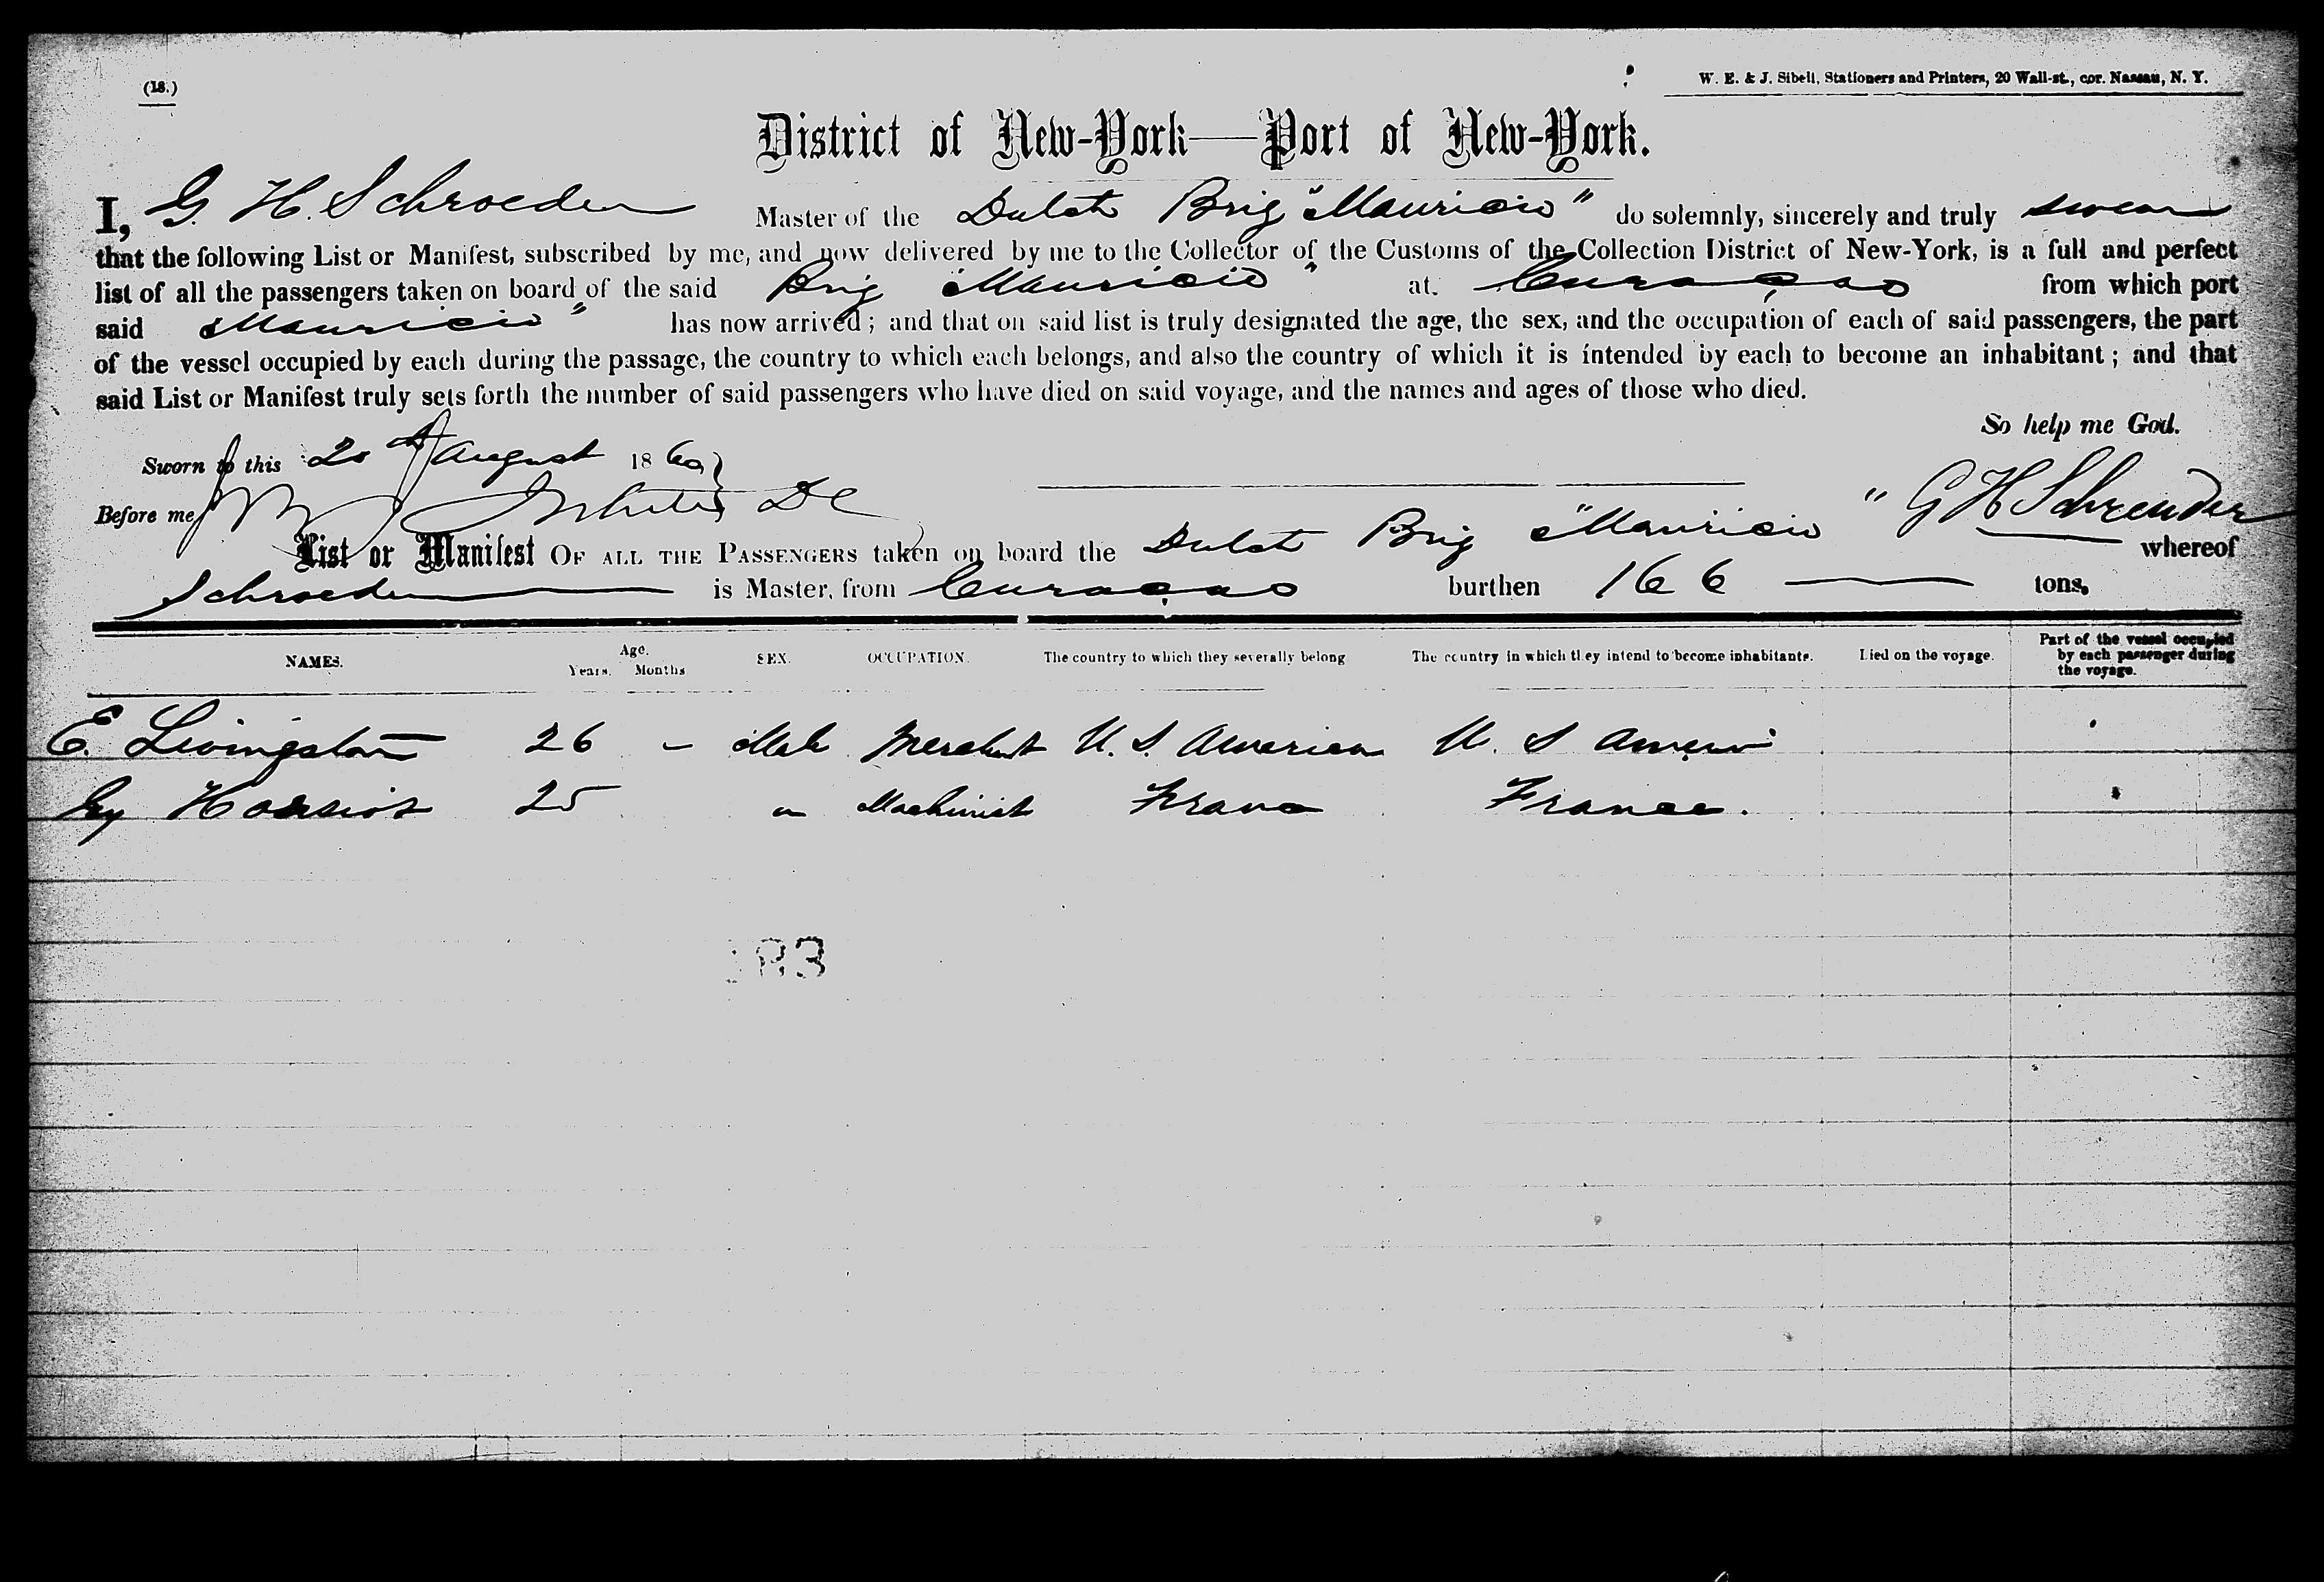 (18.)
W. E. & J. Sibell, Stationers and Printers, 20 Wall-st., cor. Nassau, N. Y.
District of New-York—Port of New-York.
I, G. H. Schroeder Master of the Dutch Brig "Mauricio" do solemnly, sincerely and truly swear
that the following List or Manifest, subscribed by me, and now delivered by me to the Collector of the Customs of the Collection District of New-York, is a full and perfect
list of all the passengers taken on board of the said Brig "Mauricio" at. Curaçao from which port
said Mauricio" has now arrived; and that on said list is truly designated the age, the sex, and the occupation of each of said passengers, the part
of the vessel occupied by each during the passage, the country to which each belongs, and also the country of which it is intended by each to become an inhabitant; and that
said List or Manifest truly sets forth the number of said passengers who have died on said voyage, and the names and ages of those who died.
So help me God.
Sworn to this 20 August 1860
Before me DC
"GHSchreuder
List or Manifest OF ALL THE PASSENGERS taken on board the Dutch Brig "Mauricio" whereof
Schroeder is Master, from Curaçao burthen 166 tons.
NAMES. Age. Years. Months SEX. OCCUPATION. The country to which they severally belong The country in which they intend to become inhabitants. Died on the voyage. Part of the vessel occupied by each passenger during the voyage.
E. Livingston 26 - Male Merchant U. S. America U. S Ameri
25 " Machinist France France.
183